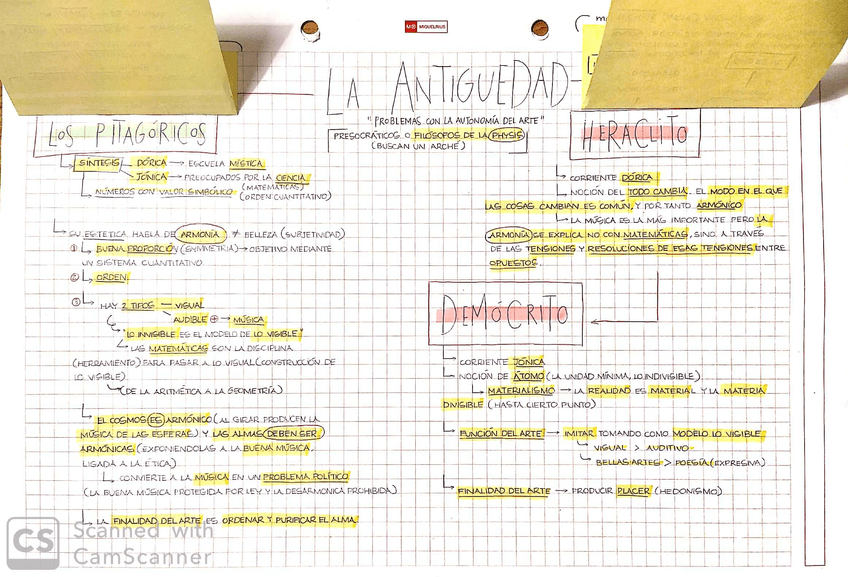 MIQUELRIUS
LA ANTIGUEDAD
"PROBLEMAS CON LA AUTONOMÍA DEL ARTE"
PRESOCRÁTICOS O FILÓSOFOS DE LA PHYSIS
(BUSCAN UN ARCHÉ)
LOS PITAGÓRICOS
SÍNTESIS DÓRICA → ESCUELA MÍSTICA
JÓNICA → PREOCUPADOS POR LA CENCIA
(MATEMÁTICAS)
NÚMEROS CON VALOR SIMBÓLICO (ORDEN CUANTITATIVO)
SU ESTÉTICA HABLA DE ARMONÍA ≠ BELLEZA (SUBJETIVIDAD)
① BUENA PROPORCIÓN (SYMMETRIA) → OBJETIVO MEDIANTE
UN SISTEMA CUANTITATIVO.
② ORDEN.
③ HAY 2 TIPOS — VISUAL
AUDIBLE ⊕ → MÚSICA
"LO INVISIBLE ES EL MODELO DE LO VISIBLE"
LAS MATEMÁTICAS SON LA DISCIPLINA
(HERRAMIENTO) PARA PASAR A LO VISUAL (CONSTRUCCIÓN DE
LO VISIBLE)
(DE LA ARITMÉTICA A LA GEOMETRÍA)
EL COSMOS ES ARMÓNICO (AL GIRAR PRODUCEN LA
MÚSICA DE LAS ESFERAS) Y LAS ALMAS DEBEN SER
ARMÓNICAS (EXPONIENDOLAS A LA BUENA MÚSICA,
LIGADA A LA ÉTICA)
CONVIERTE A LA MÚSICA EN UN PROBLEMA POLÍTICO
(LA BUENA MÚSICA PROTEGIDA POR LEY Y LA DESARMONICA PROHIBIDA)
LA FINALIDAD DEL ARTE ES ORDENAR Y PURIFICAR EL ALMA.
HERACLITO
CORRIENTE DÓRICA
NOCIÓN DEL TODO CAMBIA. EL MODO EN EL QUE
LAS COSAS CAMBIAN ES COMÚN, Y POR TANTO ARMÓNICO
LA MÚSICA ES LA MÁS IMPORTANTE PERO LA
ARMONÍA SE EXPLICA NO CON MATEMÁTICAS, SINO A TRAVÉS
DE LAS TENSIONES Y RESOLUCIONES DE ESAS TENSIONES ENTRE
OPUESTOS.
DEMÓCRITO
CORRIENTE JÓNICA
NOCIÓN DE ÁTOMO (LA UNIDAD MÍNIMA, LO INDIVISIBLE)
MATERIALISMO → LA REALIDAD ES MATERIAL Y LA MATERIA
DIVISIBLE (HASTA CIERTO PUNTO)
FUNCIÓN DEL ARTE → IMITAR TOMANDO COMO MODELO LO VISIBLE
VISUAL > AUDITIVO
BELLAS ARTES > POESÍA (EXPRESIVA)
FINALIDAD DEL ARTE → PRODUCIR PLACER (HEDONISMO)
CS Scanned with
CamScanner